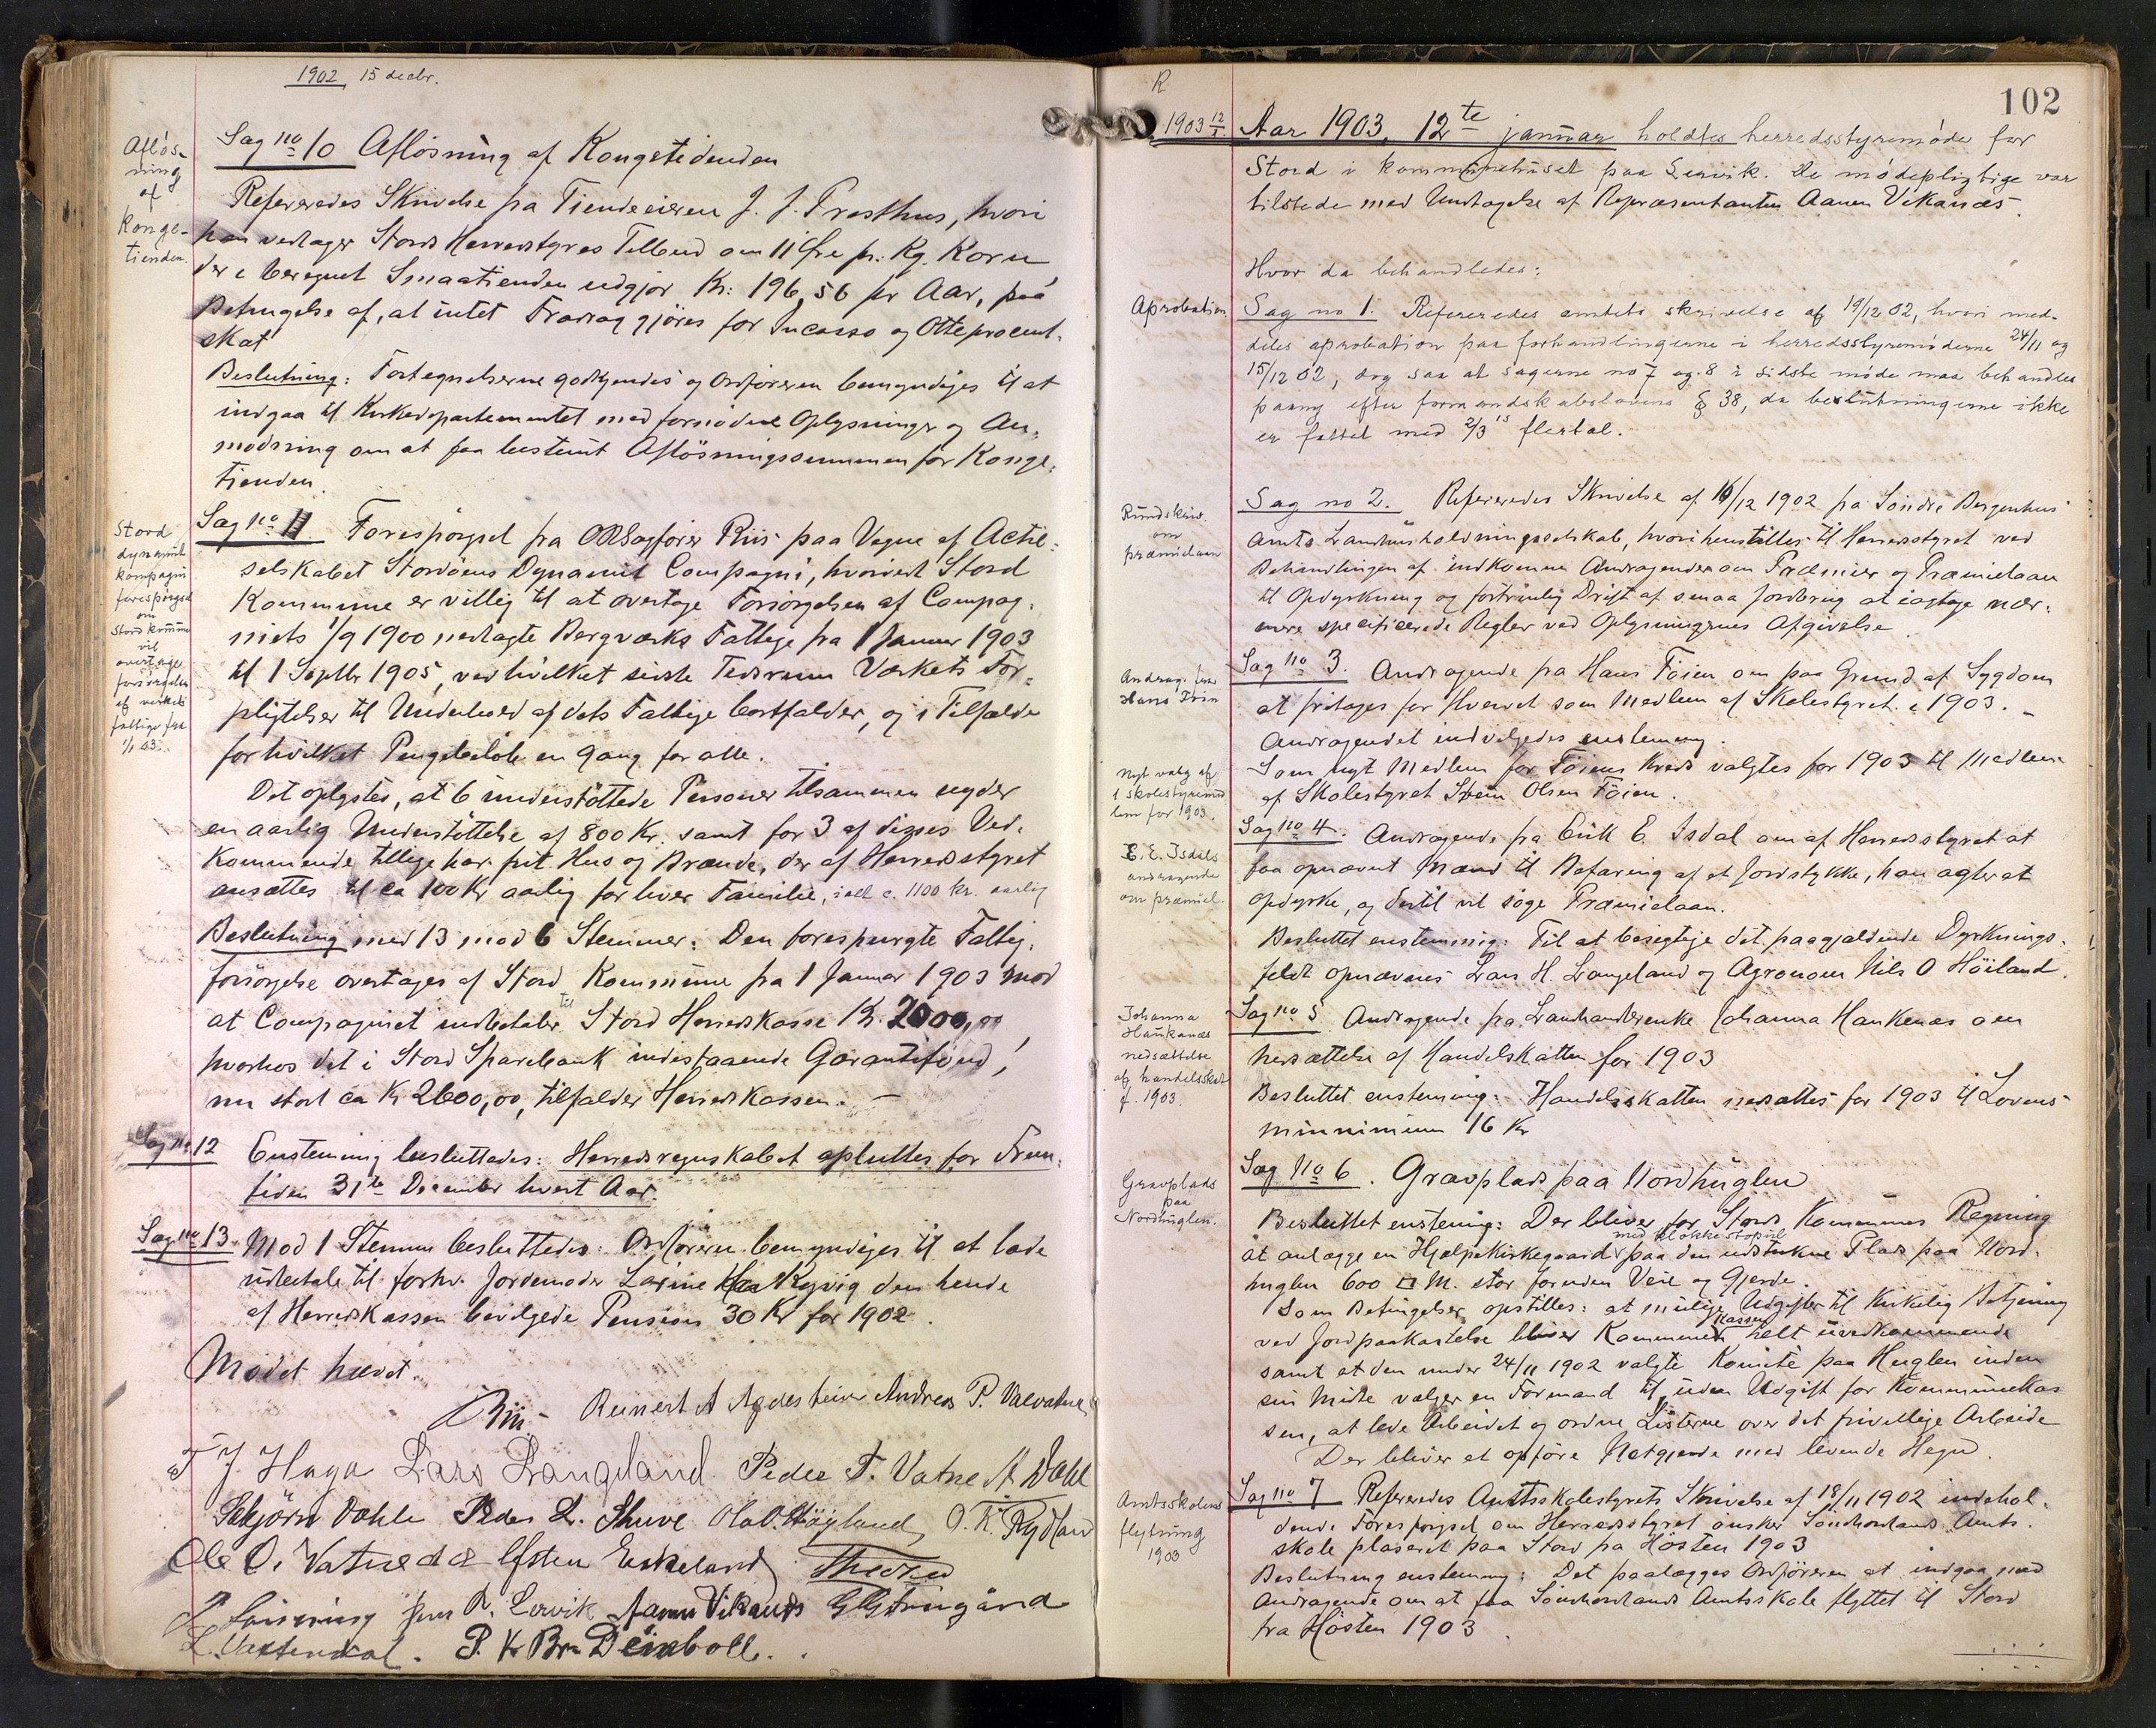 1902, 15 decbr.
Afløs-
ning
af
Konge-
tienden.
Sag no 10 Afløsning af Kongetienden
Refereredes Skrivelse fra Tiendeeieren J. J. Presthus, hvori
han vedtager Stord Herredsstyres Tilbud om 11 Øre pr. Kg. Korn
der i beregnet Smaatienden udgjør Kr: 196,56 pr Aar, paa
Betingelse af, at intet Fradrag gjøres for Incasso og Otteprocent-
skat
Beslutning: Fortegnelserne godkjendes og Ordføreren bemyndiges til at
indgaa til Kirkedepartementet med fornødne Oplysninger og An-
modning om at faa bestemt Afløsningssummen for Konge-
tienden.
Stord
dynamit
kompagni
forespørgsel
om
Stord komme
vil
overtage
forsørgelsen
af verkets
fattige fra
1/1 03.
Sag no 11. Forespørgsel fra ORSagfører Riis paa Vegne af Actie-
selskabet Stordøens Dynamit Compagni, hvorvidt Stord
Kommune er villig til at overtage Forsørgelsen af Compag-
niets 1/9 1900 nedlagte Bergværks Fattige fra 1 Januar 1903
til 1 Septbr 1905, ved hvilket sidste Tidsrum Værkets For-
pligtelser til Underhold af dets Fattige bortfalder, og i Tilfælde
for hvilket Pengebeløb en Gang for alle.
Det oplystes, at 6 understøttede Personer tilsammen nyder
en aarlig Understøttelse af 800 Kr. samt for 3 af disses Ved-
kommende tillige har frit Hus og Brænde, der af Herredsstyret
ansættes til ca 100 Kr aarlig for hver Familie, ialt c. 1100 kr. aarlig
Beslutning med 13 mod 6 Stemmer: Den forespurgte Fattig-
forsørgelse overtages af Stord Kommune fra 1 Januar 1903 mod
at Compagniet indbetaler til Stord Herredskasse Kr. 2000,00
hvorhos det i Stord Sparebank indestaaende Garantifond,
nu stort ca Kr 2600,00, tilfalder Herredskassen. —
Sag no 12 Enstemmig besluttedes: Herredsregnskabet afsluttes for Frem-
tiden 31te December hvert Aar.
Sag no 13. Mod 1 Stemme besluttedes: Ordføreren bemyndiges til at lade
udbetale til forhv. Jordemoder Larine Kyvig den hende
af Herredskassen bevilgede Pension 30 Kr for 1902.
Mødet hævet.
Riis Reinert A Agdestein Andreas P. Valvatne
T J. Haga Lars Langeland Peder T. Vatne A. Dahl
Sebjörn Dahle Peder L. Skuve Ola O. Høyland O. K. Rydland
Ole O. Vatnedal Østen Eskeland
Jens R. Lervik Aamu Vikanes
P. Kr Br. Deinboll.
R
102
1903 12/1. Aar 1903, 12te januar holdtes herredsstyremøde for
Stord i kommunehuset paa Lervik. De mødepligtige var
tilstede med Undtagelse af Repræsentanten Aamu Vikanæs.
Hvor da behandledes:
Aprobation
Sag no 1. Refereredes amtets skrivelse af 19/12 02, hvori med-
deles aprobation paa forhandlingerne i herredsstyremøderne 24/11 og
15/12 02, dog saa at sagerne no 7 og 8 i sidste møde maa behandles
paany efter formandskabslovens § 38, da beslutningerne ikke
er fattet med 2/3 is flertal.
Rundskriv.
om
præmielaan
Sag no 2. Refereredes Skrivelse af 16/12 1902 fra Søndre Bergenhus
Amts Landhusholdningsselskab, hvori henstilles til Herredsstyret ved
Behandlingen af indkomne Andragender om Præmier og Præmielaan
til Opdyrkning og fortrinlig Drift af smaa Jordbrug at iagttage nær-
mere specificerede Regler ved Oplysningernes Afgivelse.
Andrag. fra
Hans Föien
Sag no 3. Andragende fra Hans Föien om paa Grund af Sygdom
at fritages for Hvervet som Medlem af Skolestyret i 1903. —
Andragendet indvilgedes enstemmig.
Nyt valg af
1 skolestyremed
lem for 1903.
Som nyt Medlem for Föiens Kreds valgtes for 1903 til Medlem
af Skolestyret Svein Olsen Föien.
E. E. Isdals
andragende
om præmiel.
Sag no 4. Andragende fra Erik E. Isdal om af Herredsstyret at
faa opnævnt Mænd til Befaring af et Jordstykke, han agter at
opdyrke, og dertil vil søge Præmielaan.
Besluttet enstemmig: Til at besigtige det paagjældende Dyrknings-
feldt opnævnes Lars H. Langeland og Agronom Nils O Höiland.
Johanna
Haukanæs
nedsættelse
af handelsskat
f. 1903.
Sag no 5 Andragende fra Landhandlerenke Johanna Haukenæs om
nedsættelse af Handelskatten for 1903
Besluttet enstemmig: Handelsskatten nedsættes for 1903 til Lovens
minnimum 16 Kr
Gravplads
paa
Nordhuglen.
Sag no 6. Gravplads paa Nordhuglen
Besluttet enstemig: Der bliver for Stord Kommunes Regning
at anlægge en Hjælpekirkegaard med klokkestøpul paa den udstukne Plads paa Nord-
huglen 600 □ M. stor foruden Veie og Gjerde.
Som Betingelser opstilles: at mulige Udgifter til Kirkelig Betjening
ved Jordpaakastelse bliver Kommunekassen helt uvedkommende
samt at den under 24/11 1902 valgte Komite paa Huglen inden
sin Midte vælger en Formand til, uden Udgift for Kommunekas-
sen, at lede Arbeidet og ordne Listerne over det frivillige Arbeide
Der bliver at opføre Netgjerde med levende Hegn.
Amtsskolens
flytning
1903
Sag no 7 Refereredes Amtsskolestyrets Skrivelse af 18/11 1902 indehol-
dende Forespørgsel om Herredsstyret ønsker Søndhordlands Amts-
skole plaseret paa Stord fra Høsten 1903
Beslutning enstemmig: Det paalægges Ordføreren at indgaa med
Andragende om at faa Søndhordlands Amtsskole flyttet til Stord
fra Høsten 1903.